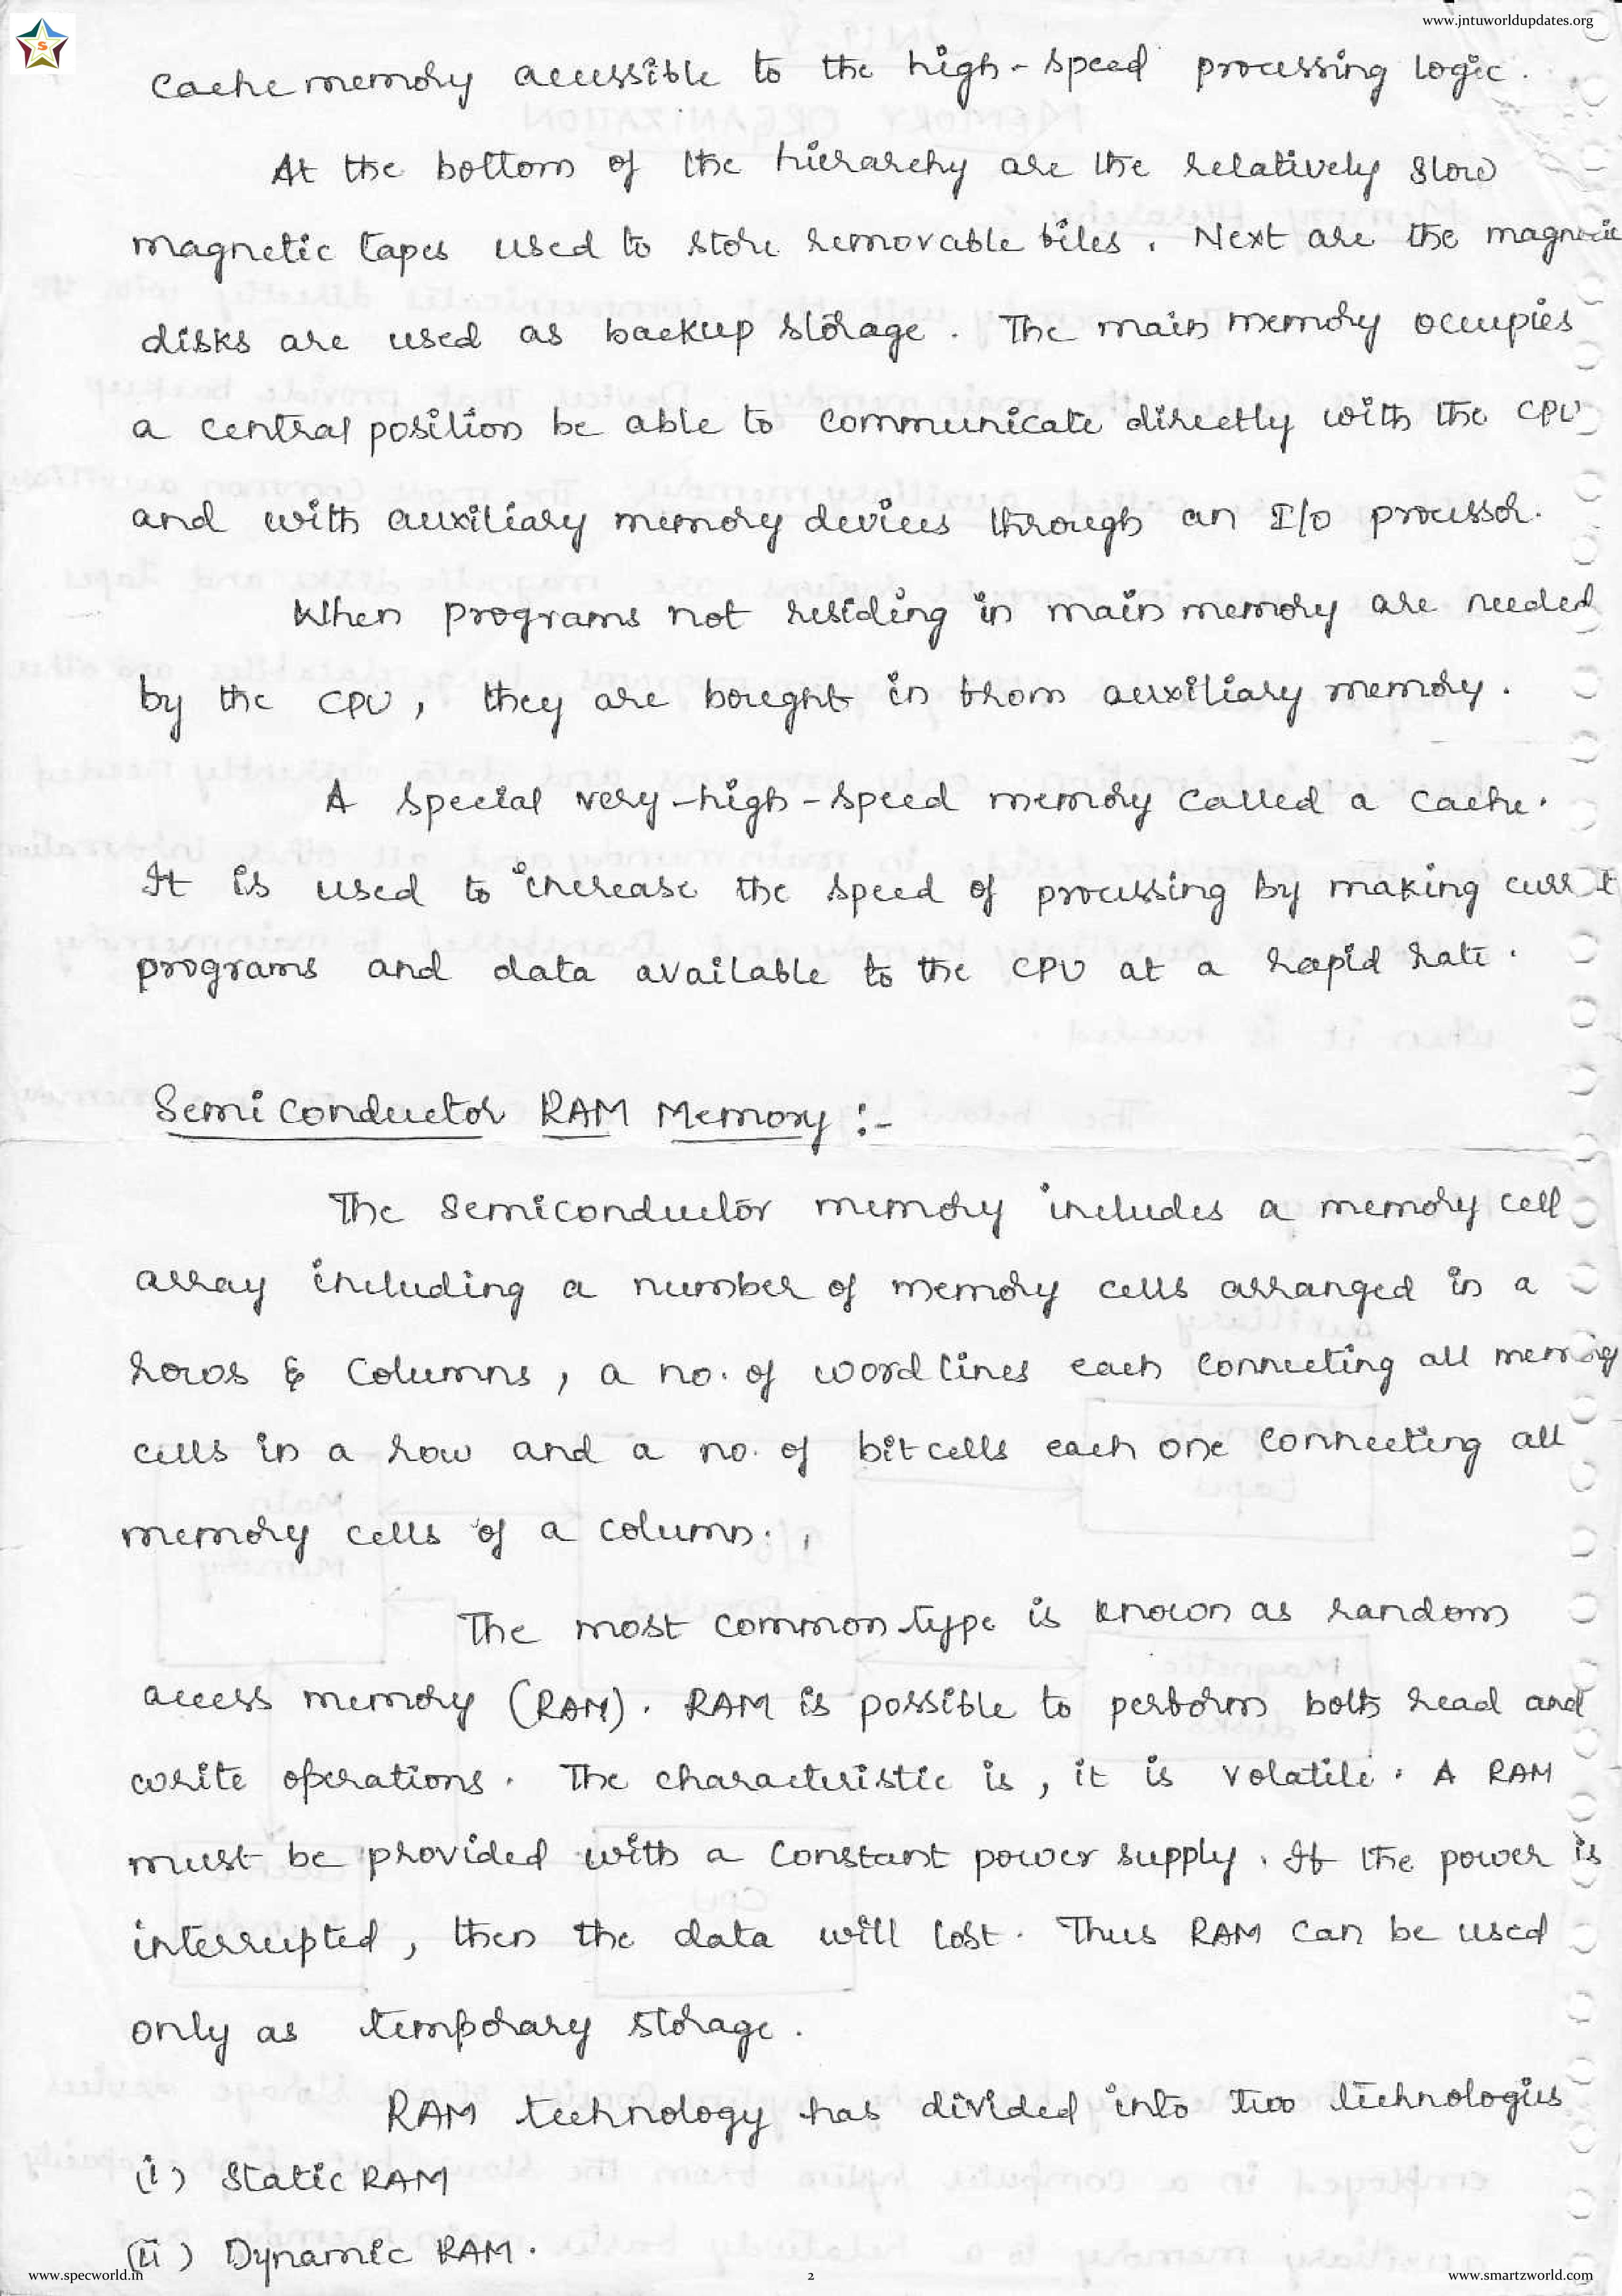 www.jntuworldupdates.org
S
cache memory accessible to the high-speed processing logic.
At the bottom of the hierarchy are the relatively slow
magnetic tapes used to store removable files. Next are the magnetic
disks are used as backup storage. The main memory occupies
a central position be able to communicate directly with the CPU
and with auxiliary memory devices through an I/O processor.
When programs not residing in main memory are needed
by the CPU, they are bought in from auxiliary memory.
A special very-high-speed memory called a cache.
It is used to increase the speed of processing by making
programs and data available to the CPU at a rapid rate.
Semi conductor RAM Memory :-
The semiconductor memory includes a memory cell
array including a number of memory cells arranged in a
rows & columns, a no. of word lines each connecting all memory
cells in a row and a no. of bit cells each one connecting all
memory cells of a column.
The most common type is known as random
access memory (RAM). RAM is possible to perform both read and
write operations. The characteristic is, it is volatile. A RAM
must be provided with a constant power supply. If the power is
interrupted, then the data will lost. Thus RAM can be used
only as temporary storage.
RAM technology has divided into two technologies
(i) Static RAM
(ii) Dynamic RAM.
www.specworld.in
2
www.smartzworld.com